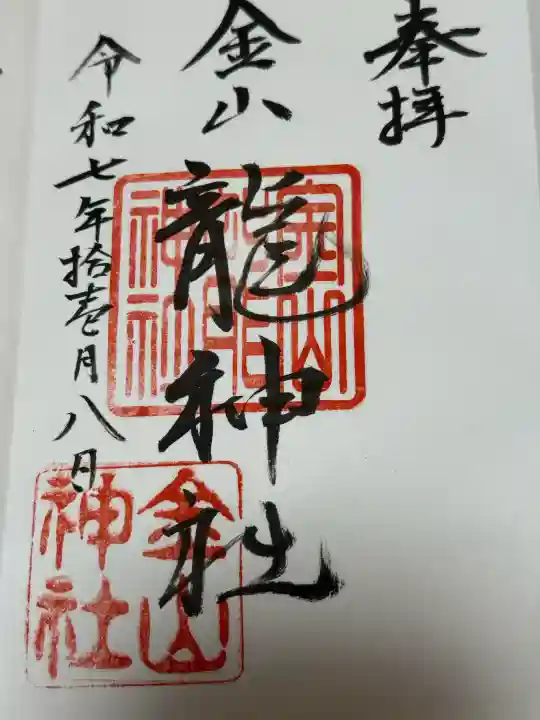 奉拝
金山
龍神社
令和七年拾壱月八日
金山
龍神
神社
金山
神社